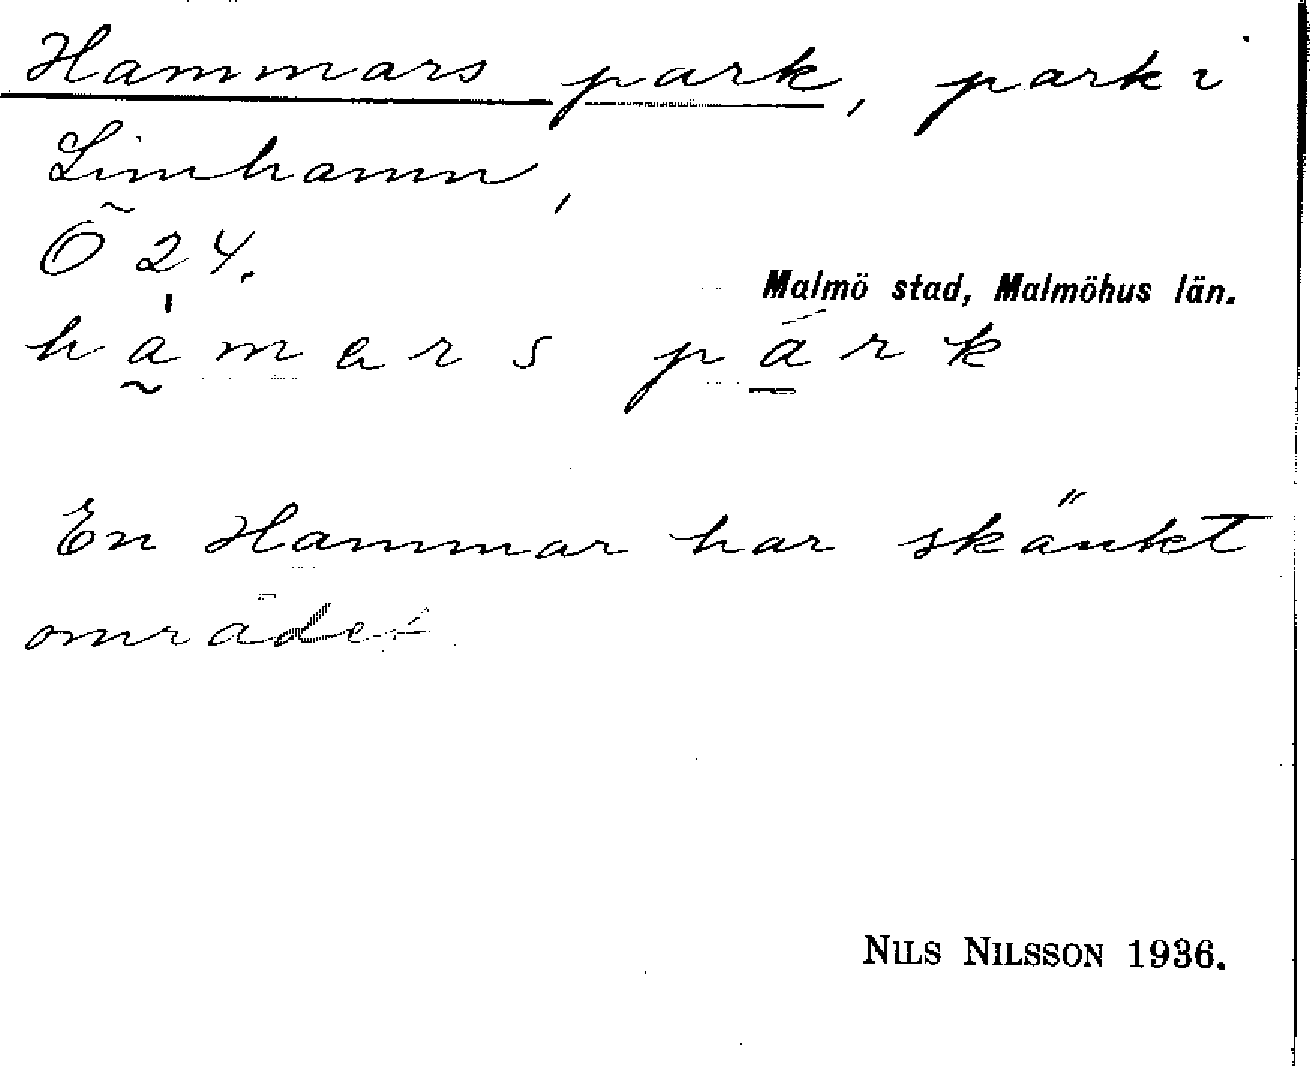 Hammars park, park i
Limhamn,
Ö 24.
Malmö stad, Malmöhus län.
hamars park
En Hammar har skänkt
området.
NILS NILSSON 1936.